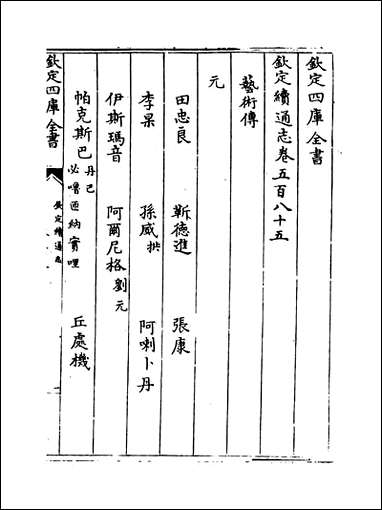 欽定四庫全書
欽定續通志卷五百八十五
藝術傳
元
田忠良 靳德進 張康
李杲 孫威拱 阿喇卜丹
伊斯瑪音 阿爾尼格劉元
帕克斯巴丹巴 必嚕匝納實哩 丘處機
欽定四庫全書
欽定續通志